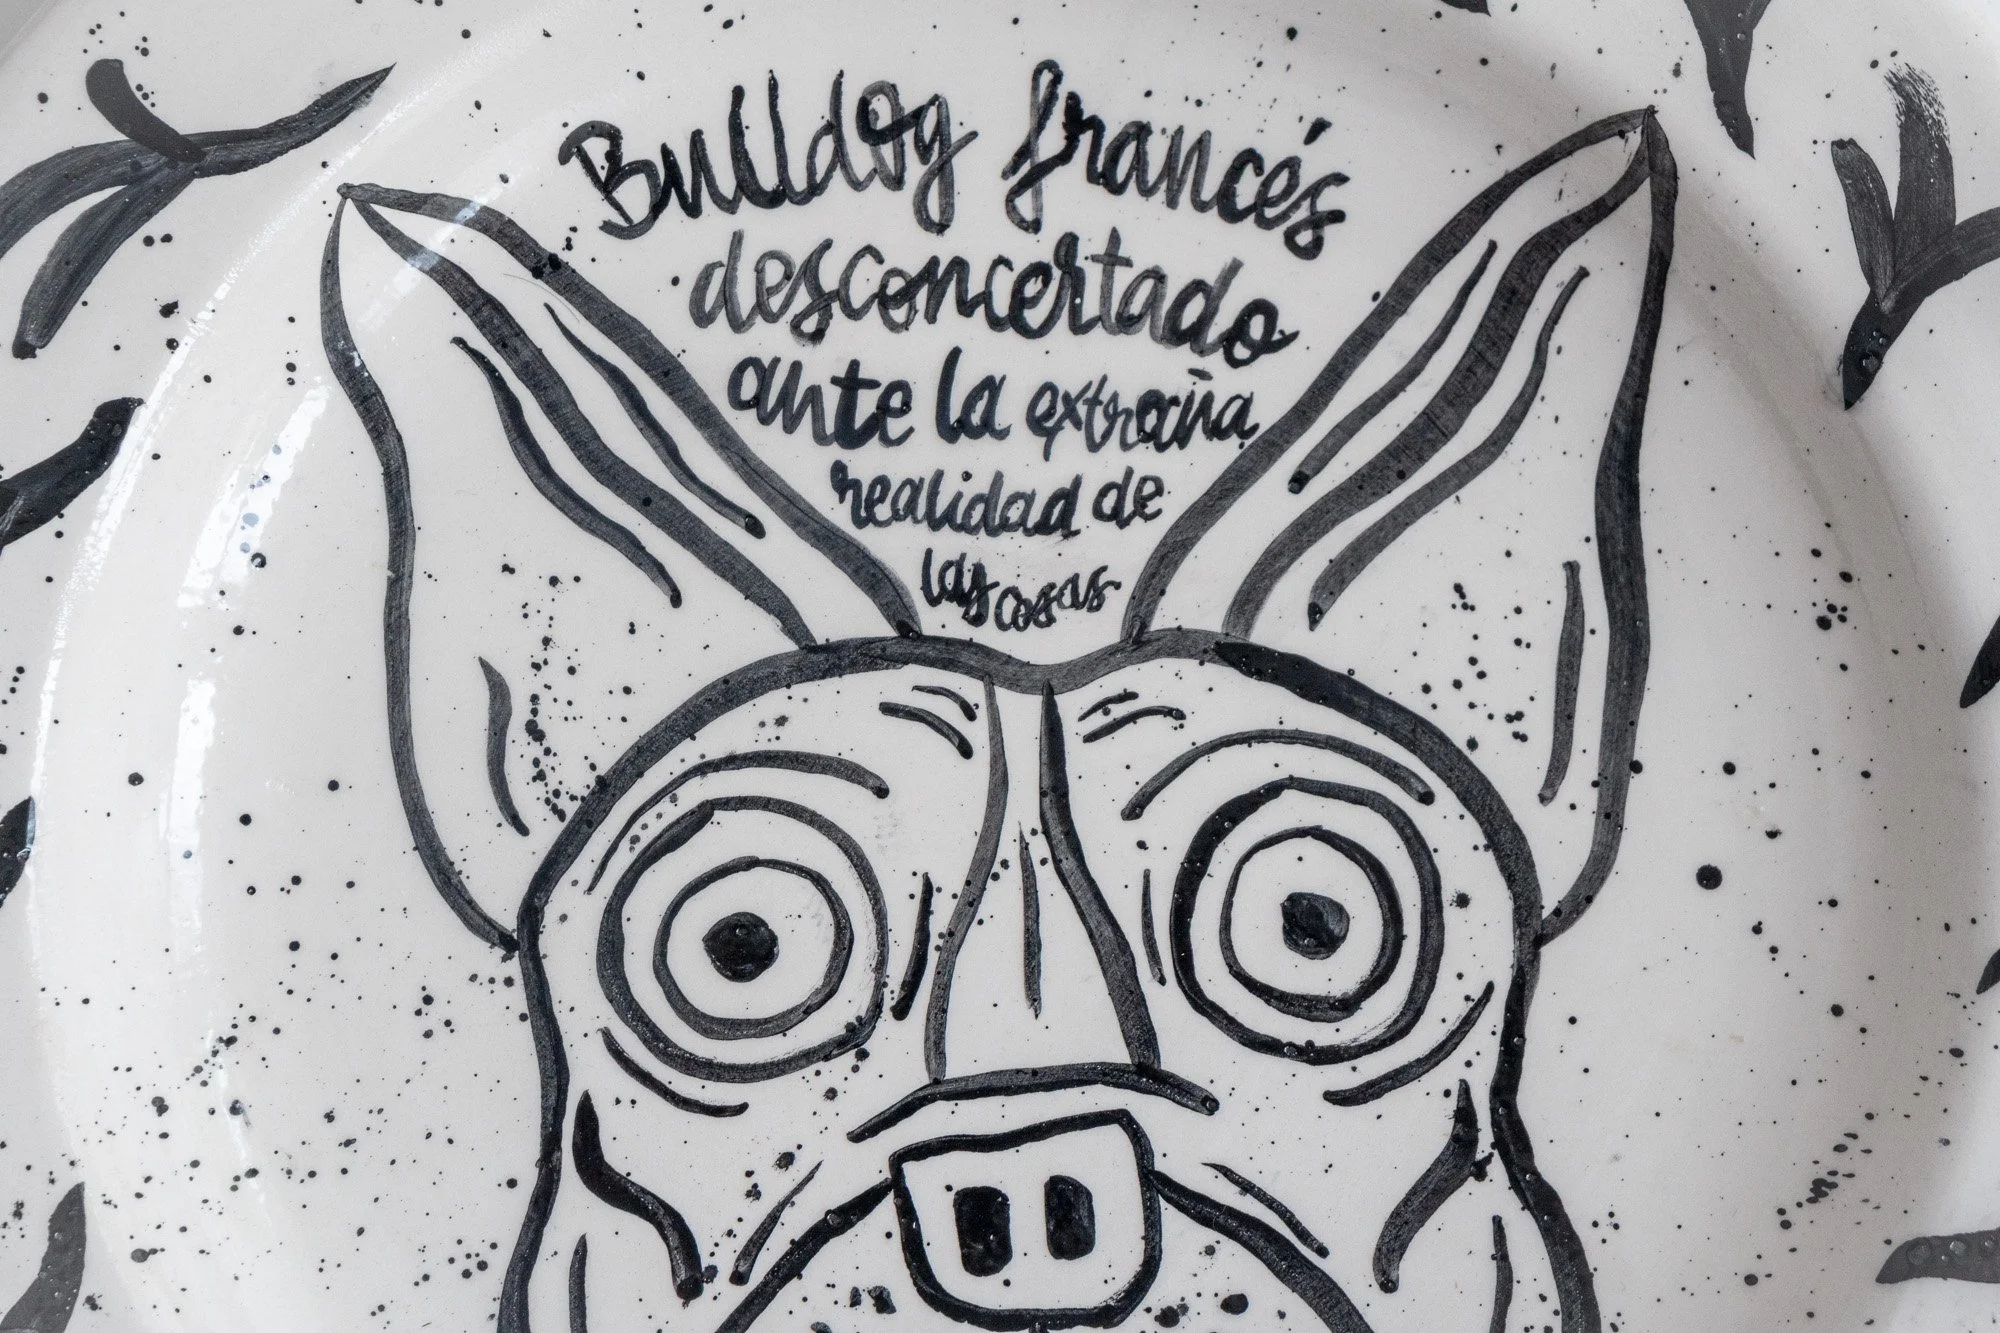 Bulldog francés
desconcertado
ante la extraña
realidad de
las cosas